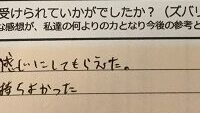 受けられていかがでしたか？（ズバリ
な感想が、私達の何よりの力となり今後の参考と
にしてもらえた。
持ちよかった